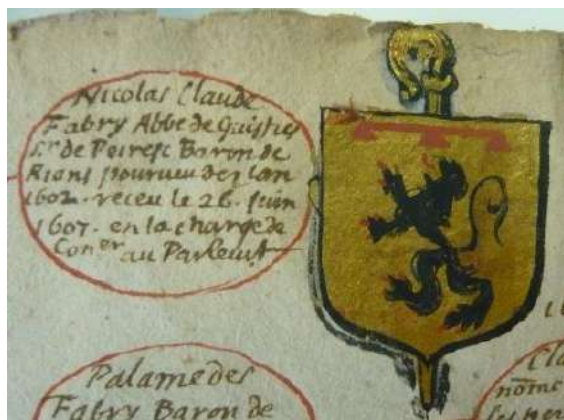 Nicolas Claude
Fabry Abbe de Guistres
Sr de Peiresc Baron de
Rians pourvu des l'an
1602. receu le 26. Juin
1607. en la charge de
Coner au Parlemt
Palamedes
Fabry Baron de
Cla
nom